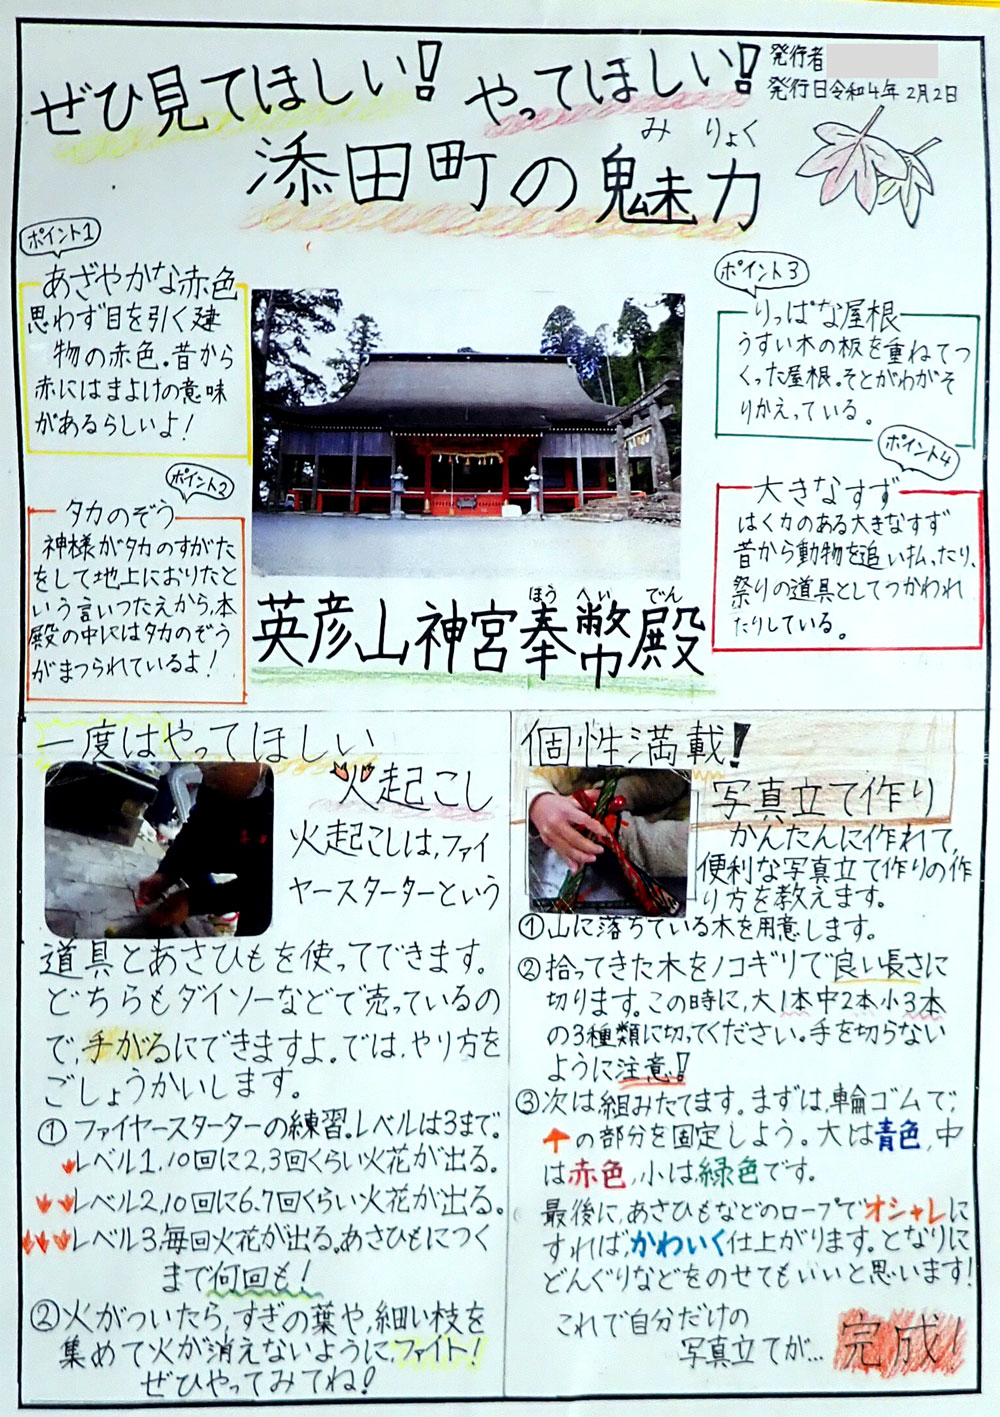 ぜひ見てほしい! やってほしい!
発行者
発行日令和4年2月2日
添田町の魅力
み りょく
ポイント1
あざやかな赤色
思わず目を引く建
物の赤色。昔から
赤にはまよけの意味
があるらしいよ!
ポイント2
タカのぞう
神様がタカのすがた
をして地上におりたと
いう言いつたえから、本
殿の中にはタカのぞう
がまつられているよ!
ポイント3
りっぱな屋根
うすい木の板を重ねてつ
くった屋根。そとがわがそ
りかえっている。
ポイント4
大きなすず
はく力のある大きなすず
昔から動物を追い払ったり、
祭りの道具としてつかわれ
たりしている。
英彦山神宮奉幣殿
ほう へい でん
一度はやってほしい
火起こし
火起こしは、ファイ
ヤースターターという
道具とあさひもを使ってできます。
どちらもダイソーなどで売っているの
で、手がるにできますよ。では、やり方を
ごしょうかいします。
①ファイヤースターターの練習。レベルは3まで。
レベル1、10回に2、3回くらい火花が出る。
レベル2、10回に6、7回くらい火花が出る。
レベル3、毎回火花が出る。あさひもにつく
まで何回も!
②火がついたら、すぎの葉や、細い枝を
集めて火が消えないように、ファイト!
ぜひやってみてね!
個性満載!
写真立て作り
かんたんに作れて、
便利な写真立て作りの作
り方を教えます。
①山に落ちている木を用意します。
②拾ってきた木をノコギリで良い長さに
切ります。この時に、大1本中2本小3本
の3種類に切ってください。手を切らない
ように注意!
③次は、組みたてます。まずは、輪ゴムで、
の部分を固定しよう。大は青色、中
は赤色、小は緑色です。
最後に、あさひもなどのロープでオシャレに
すれば、かわいく仕上がります。となりに
どんぐりなどをのせてもいいと思います!
これで自分だけの
写真立てが…完成!